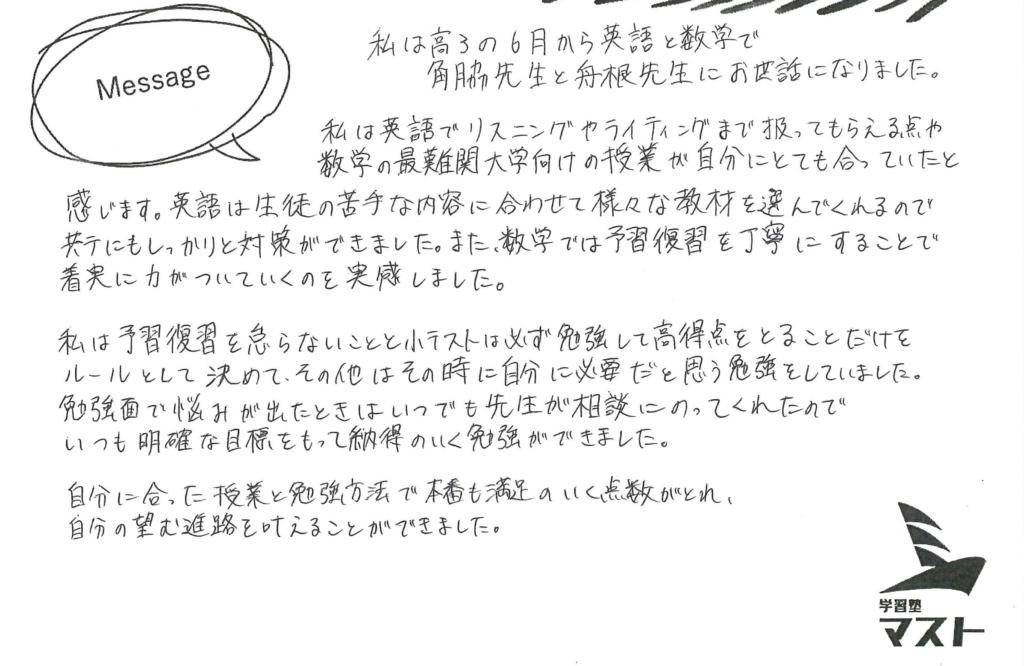 Message
私は高3の6月から英語と数学で
角脇先生と舟根先生にお世話になりました。
私は英語でリスニングやライティングまで扱ってもらえる点や
数学の最難関大学向けの授業が自分にとても合っていたと
感じます。英語は生徒の苦手な内容に合わせて様々な教材を選んでくれるので
共テにもしっかりと対策ができました。また、数学では予習復習を丁寧にすることで
着実に力がついていくのを実感しました。
私は予習復習を怠らないことと小テストは必ず勉強して高得点をとることだけを
ルールとして決めて、その他はその時に自分に必要だと思う勉強をしていました。
勉強面で悩みが出たときはいつでも先生が相談にのってくれたので
いつも明確な目標をもって納得のいく勉強ができました。
自分に合った授業と勉強方法で本番も満足のいく点数がとれ、
自分の望む進路を叶えることができました。
学習塾
マスト